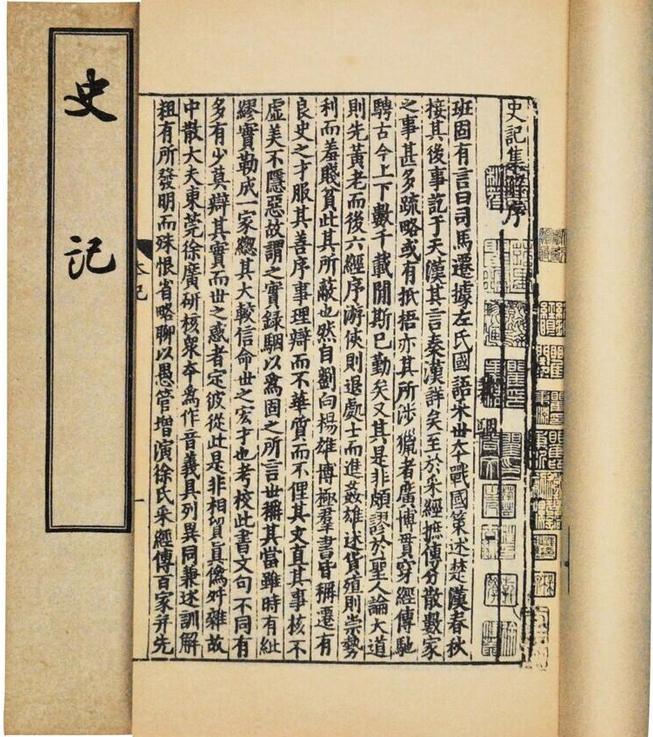 史記集解序
班固有言曰司馬遷據左氏國語采世夲戰國策述楚漢春秋
接其後事訖于天漢其言秦漢詳矣至於采經摭傳分散數家
之事甚多疏略或有抵梧亦其所涉獵者廣博貫穿經傳馳
騁古今上下數千載閒斯已勤矣又其是非頗謬於聖人論大道
則先黃老而後六經序游俠則退處士而進姦雄述貨殖則崇勢
利而羞賤貧此其所蔽也然自劉向楊雄博極羣書皆稱遷有
良史之才服其善序事理辯而不華質而不俚其文直其事核不
虛美不隱惡故謂之實録駰以爲固之所言世稱其當雖時有紕
繆實勒成一家緫其大較信命世之宏才也考校此書文句不同有
多有少莫辯其實而世之惑者定彼從此是非相貿真僞舛雜故
中散大夫東莞徐廣研核衆夲爲作音義具列異同兼述訓解
粗有所發明而殊恨省略聊以愚管增演徐氏采經傳百家并先
本紀
一
史記